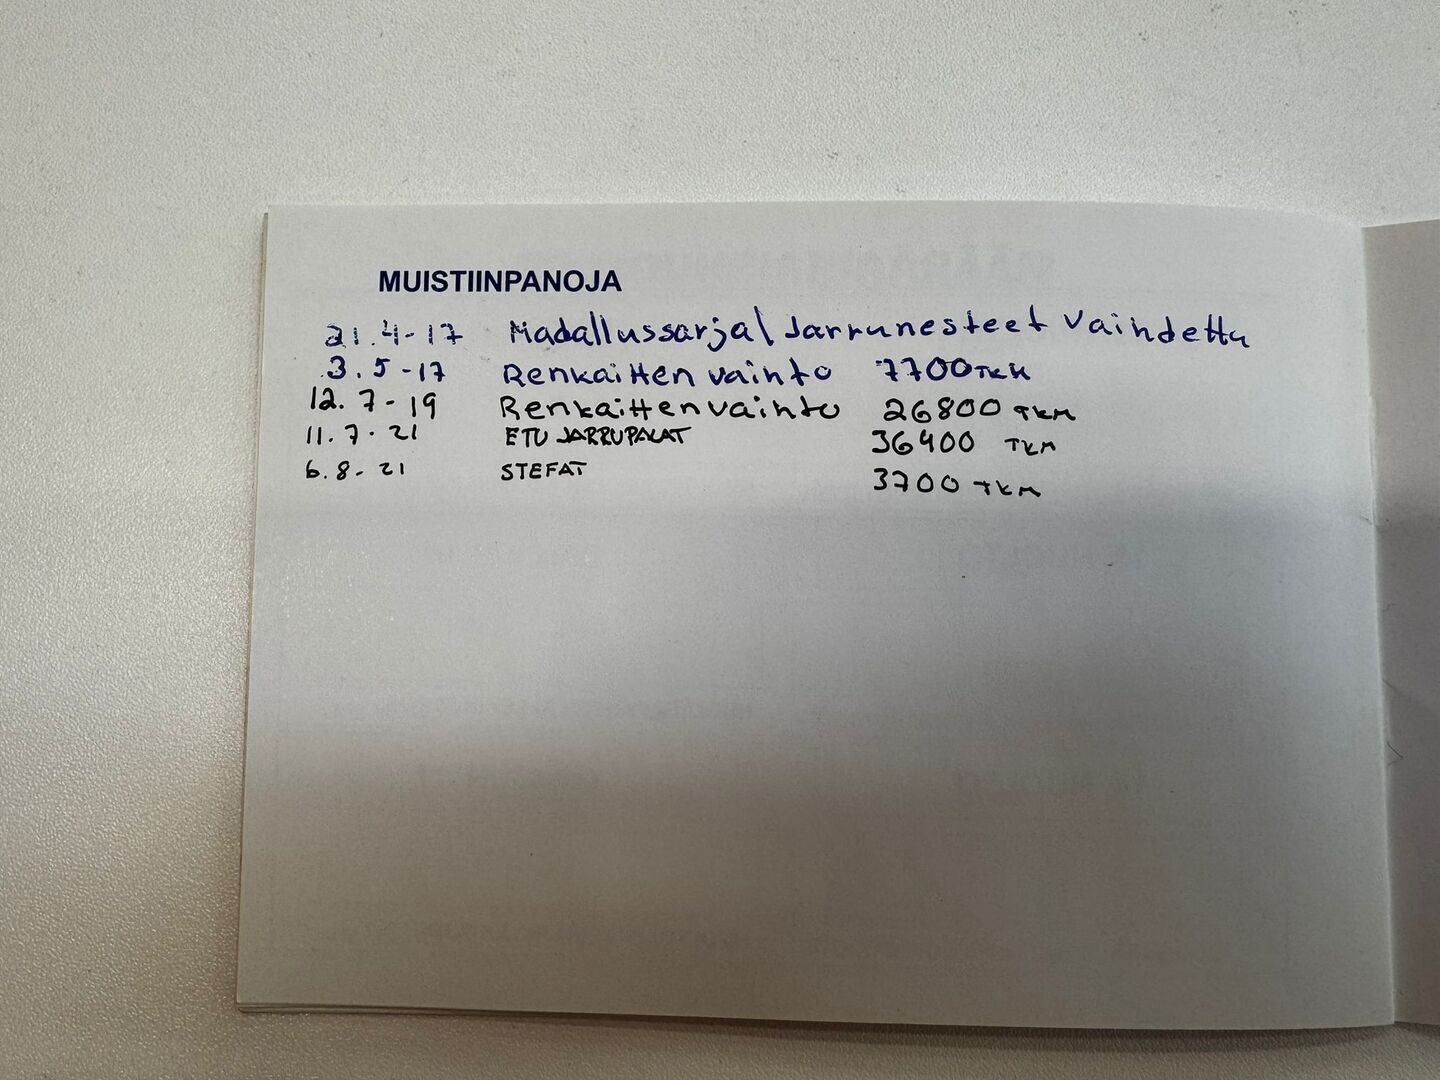 MUISTIINPANOJA
21.4-17 Madallussarja \ Jarrunesteet Vaihdettu
3.5-17 Renkaitten vainto 7700 TKM
12.7-19 Renkaitten vainto 26800 TKM
11.7.21 ETU JARRUPALAT 36400 TKM
6.8-21 STEFAT 3700 TKM